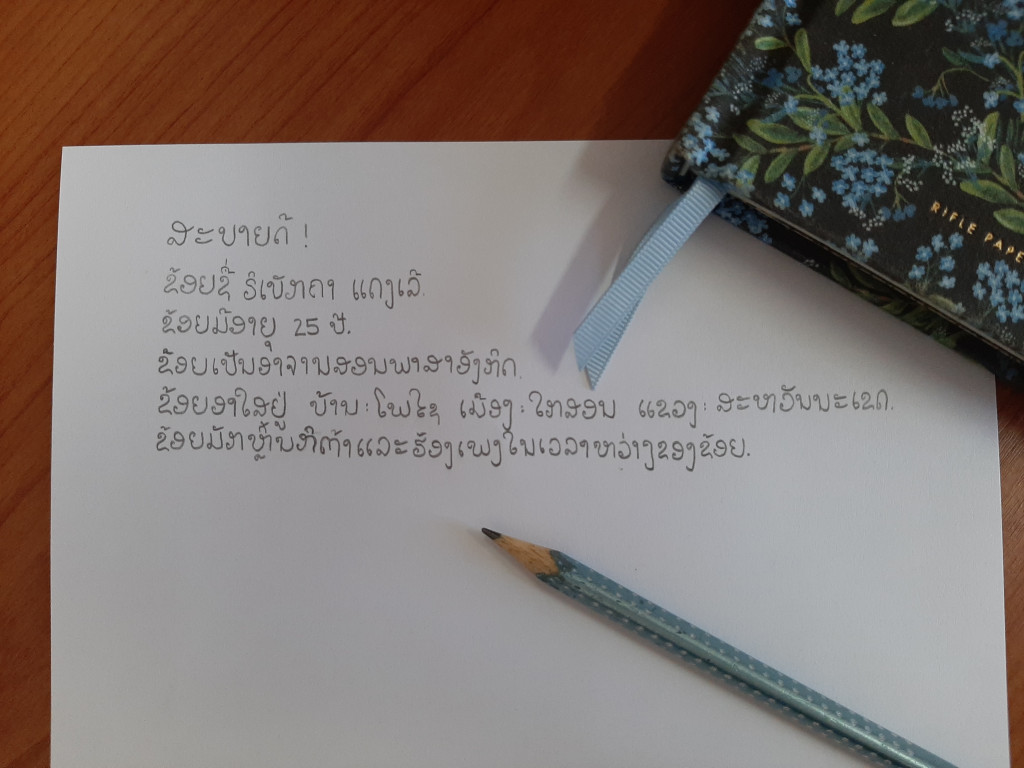 ສະບາຍດີ !
ຂ້ອຍຊື່ ຣິເບັກຄາ ແຄງເລີ.
ຂ້ອຍມີອາຍຸ 25 ປີ.
ຂ້ອຍເປັນອາຈານສອນພາສາອັງກິດ.
ຂ້ອຍອາໃສຢູ່ ບ້ານ: ໂພໄຊ ເມືອງ: ໄກສອນ ແຂວງ: ສະຫວັນນະເຂດ.
ຂ້ອຍມັກຫຼິ້ນກີຕ້າແລະຮ້ອງເພງໃນເວລາຫວ່າງຂອງຂ້ອຍ.
RIFLE PAPE